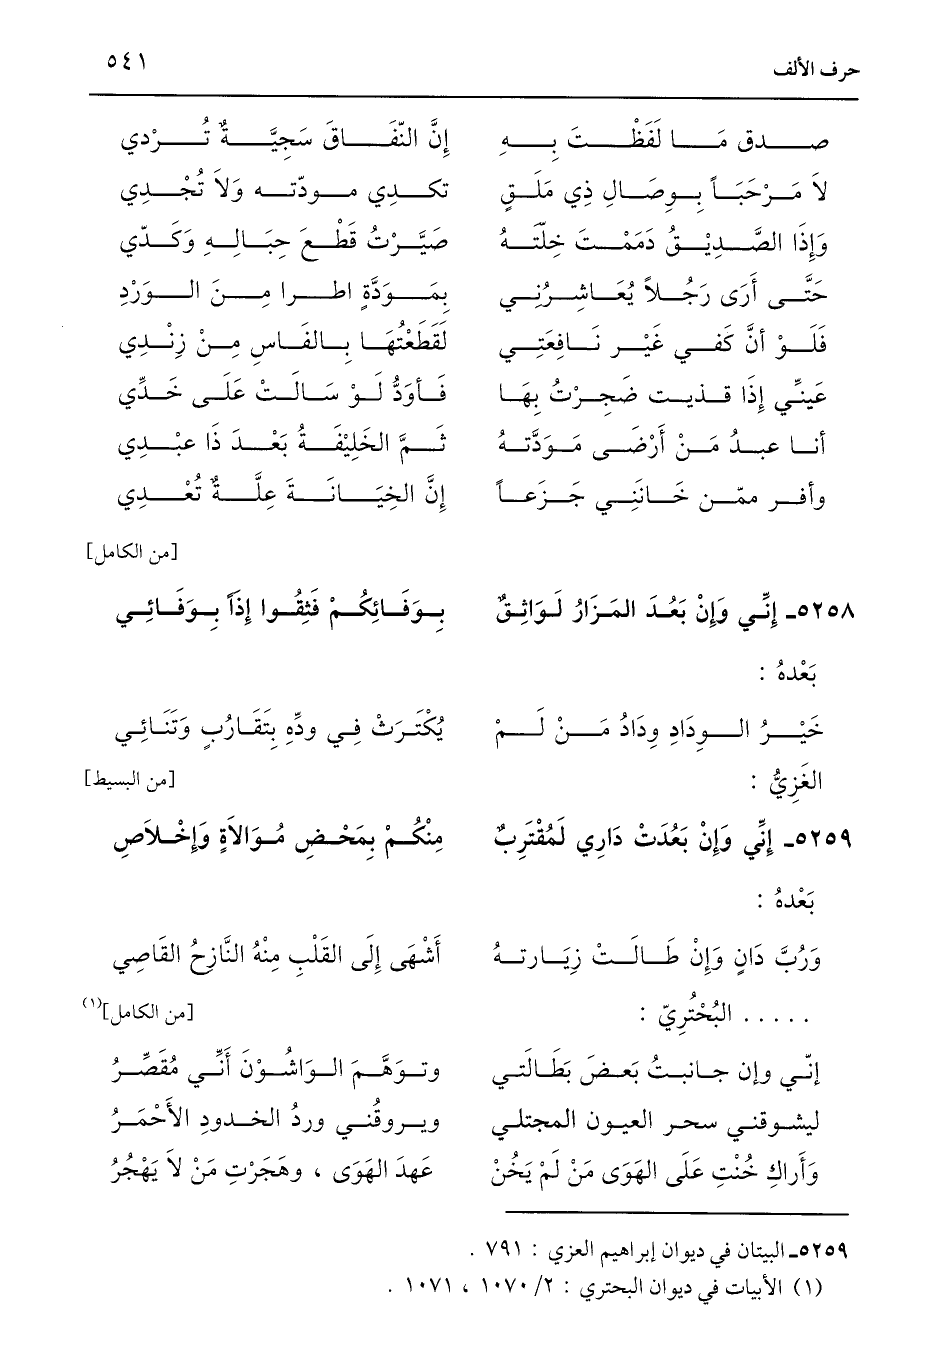 حرف الألف ٥٤١
صدق مَا لَفَظْتَ بِهِ إِنَّ النِّفَاقَ سَجِيَّةٌ تُرْدِي
لاَ مَرْحَبَاً بِوِصَالِ ذِي مَلَقٍ تكدي مودّته وَلاَ تُجْدِي
وَإِذَا الصَّدِيْقُ ذَمَمْتَ خلَّتهُ صَيَّرْتُ قَطْعَ حِبَالِهِ وَكَدّي
حَتَّى أَرَى رَجُلاً يُعَاشِرُنِي بِمَوَدَّةٍ اطرا مِنَ الوَرْدِ
فَلَوْ أنَّ كَفي غَيْر نَافِعَتِي لَقَطَعْتُهَا بِالفَاسِ مِنْ زِنْدِي
عَينِي إِذَا قذيت ضَجِرْتُ بِهَا فَأوَدُّ لَوْ سَالَتْ عَلَى خَدِّي
أنا عبدُ مَنْ أَرْضَى مَوَدَّتهُ ثُمَّ الخَلِيْفَةُ بَعْدَ ذَا عَبْدِي
وأفر ممّن خَانَنِي جَزَعاً إِنَّ الخِيَانَةَ عِلَّةٌ تُعْدِي
[من الكامل]
٥٢٥٨ـ إِنِّي وَإِنْ بَعُدَ المَزَارُ لَوَاثِقٌ بِوَفَائِكُمْ فَثِقُوا إِذَاً بِوَفَائِي
بَعْدهُ :
خَيْرُ الودَادِ وِدَادُ مَنْ لَمْ يُكْتَرَثْ فِي ودِّهِ بِتَقَارُبٍ وَتَنَائِي
الغَزِيُّ : [من البسيط]
٥٢٥٩ـ إِنِّي وَإِنْ بَعُدَتْ دَارِي لَمُقْتَرِبٌ مِنْكُمْ بِمَحْضِ مُوَالاَةٍ وَإِخْلاَصِ
بَعْدهُ :
وَرُبَّ دَانٍ وَإِنْ طَالَتْ زِيَارتهُ أَشْهَى إِلَى القَلْبِ مِنْهُ النَّازِحُ القَاصِي
..... البُحْتُرِيّ : [من الكامل](١)
إنّي وإن جانبتُ بَعضَ بَطَالَتي وتوَهَّمَ الوَاشُوْنَ أَنَّي مُقَصِّرُ
ليشوقني سحر العيون المجتلي ويروقُني وردُ الخدودِ الأَحْمَرُ
وَأَراكِ خُنْتِ عَلَى الهَوَى مَنْ لَمْ يَخُنْ عَهدَ الهَوَى ، وهَجَرْتِ مَنْ لاَ يَهْجُرُ
٥٢٥٩ـ البيتان في ديوان إبراهيم الغزي : ٧٩١ .
(١) الأبيات في ديوان البحتري : ٢/ ١٠٧٠ ، ١٠٧١ .